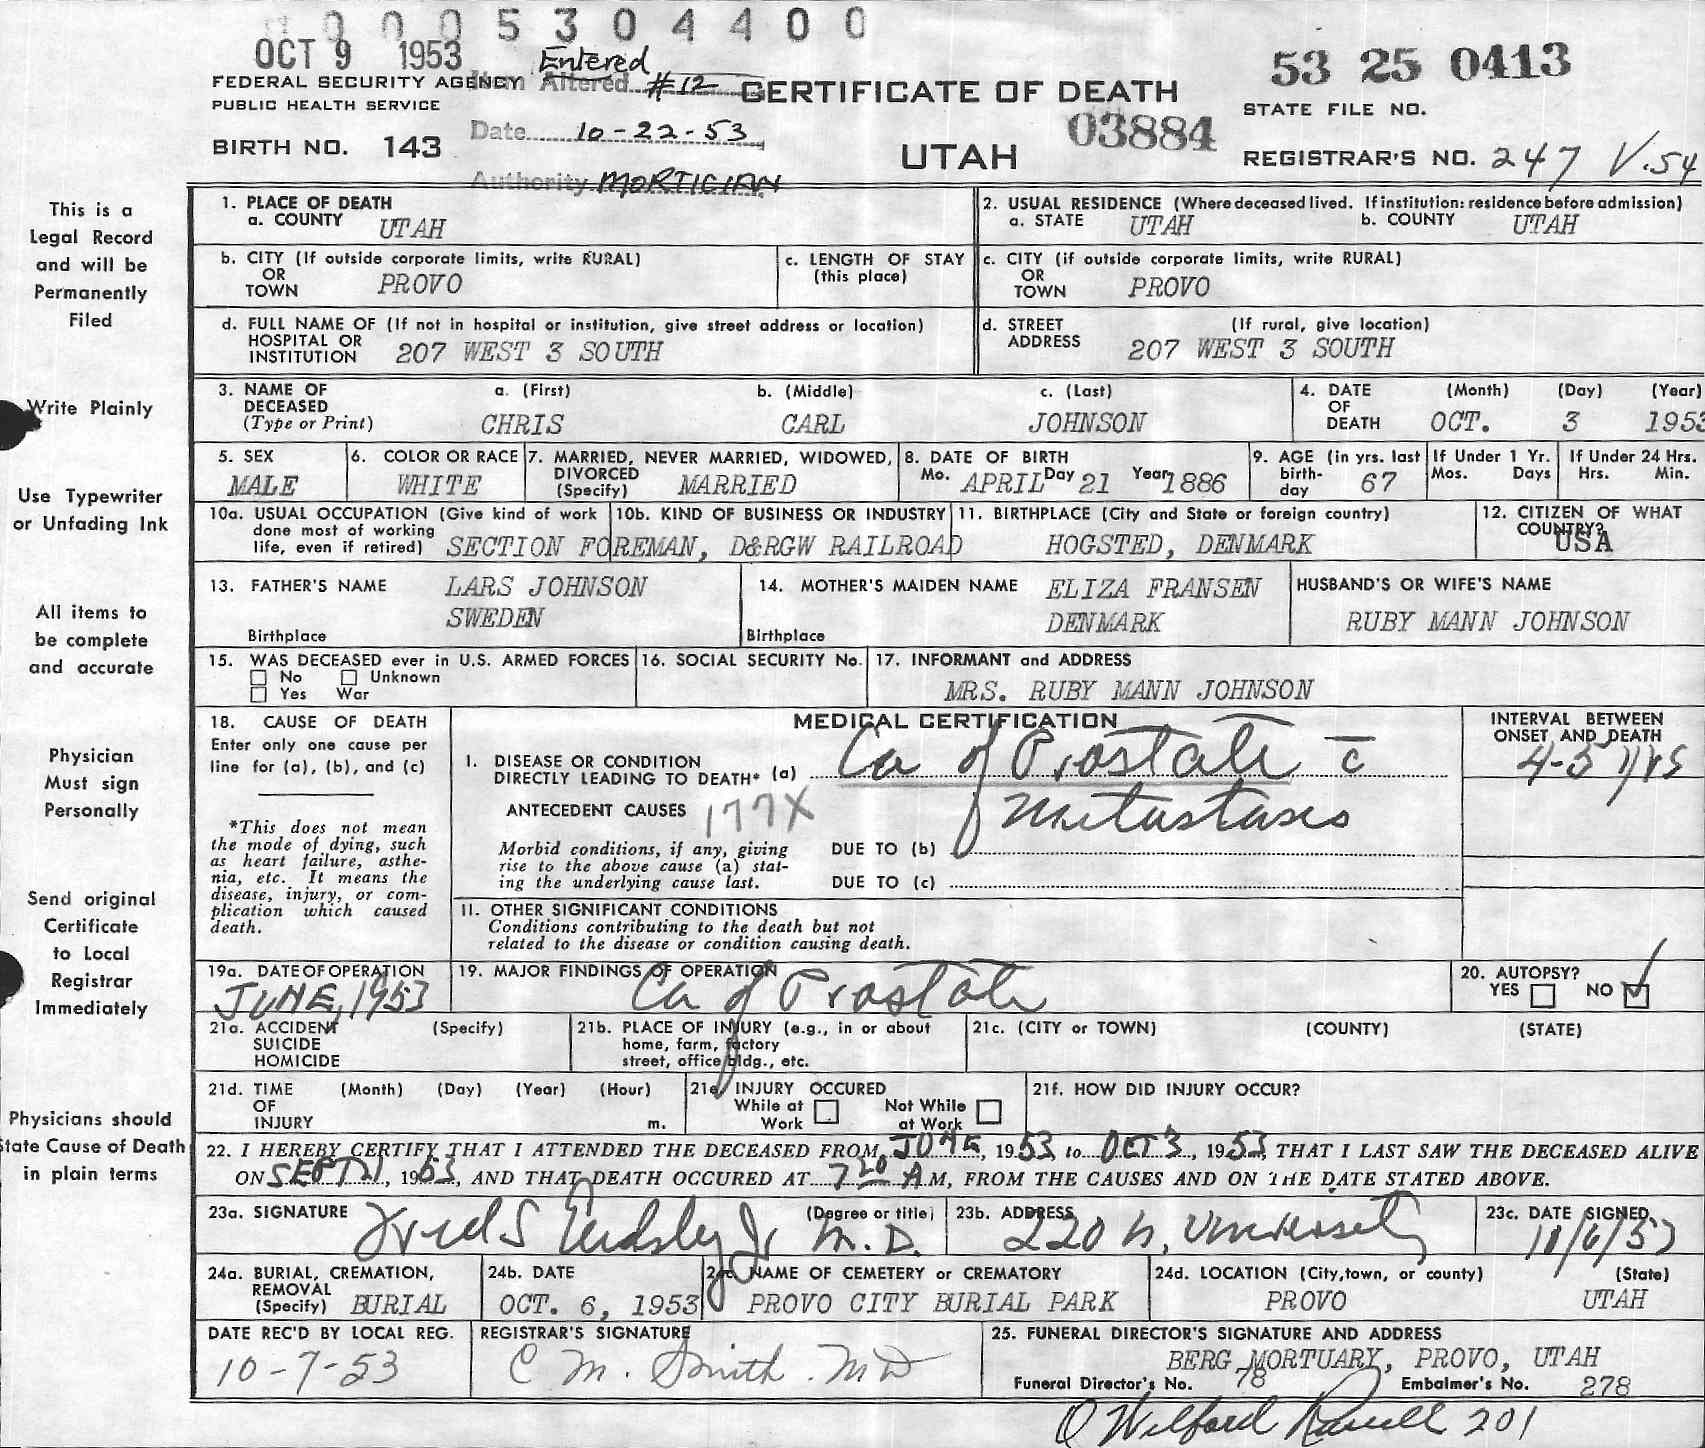 0 0 0 5 3 0 4 4 0 0
OCT 9 1953 Entered
FEDERAL SECURITY AGENCY Item Altered #12 CERTIFICATE OF DEATH 53 25 0413
PUBLIC HEALTH SERVICE STATE FILE NO.
BIRTH NO. 143 Date 10-22-53 UTAH 03884 REGISTRAR'S NO. 247 V.54
Authority MORTICIAN
This is a Legal Record and will be Permanently Filed
Write Plainly
Use Typewriter or Unfading Ink
All items to be complete and accurate
Physician Must sign Personally
Send original Certificate to Local Registrar Immediately
Physicians should State Cause of Death in plain terms
1. PLACE OF DEATH
a. COUNTY UTAH
2. USUAL RESIDENCE (Where deceased lived. If institution: residence before admission)
a. STATE UTAH b. COUNTY UTAH
b. CITY (If outside corporate limits, write RURAL) OR TOWN PROVO
c. LENGTH OF STAY (this place)
c. CITY (if outside corporate limits, write RURAL) OR TOWN PROVO
d. FULL NAME OF (If not in hospital or institution, give street address or location)
HOSPITAL OR INSTITUTION 207 WEST 3 SOUTH
d. STREET ADDRESS (If rural, give location)
207 WEST 3 SOUTH
3. NAME OF DECEASED (Type or Print)
a. (First) CHRIS b. (Middle) CARL c. (Last) JOHNSON
4. DATE OF DEATH (Month) (Day) (Year)
OCT. 3 1953
5. SEX MALE
6. COLOR OR RACE WHITE
7. MARRIED, NEVER MARRIED, WIDOWED, DIVORCED (Specify) MARRIED
8. DATE OF BIRTH
Mo. APRIL Day 21 Year 1886
9. AGE (in yrs. last birth-day 67
If Under 1 Yr. Mos. Days
If Under 24 Hrs. Hrs. Min.
10a. USUAL OCCUPATION (Give kind of work done most of working life, even if retired) SECTION FOREMAN,
10b. KIND OF BUSINESS OR INDUSTRY D&RGW RAILROAD
11. BIRTHPLACE (City and State or foreign country)
HOGSTED, DENMARK
12. CITIZEN OF WHAT COUNTRY? USA
13. FATHER'S NAME LARS JOHNSON
SWEDEN
Birthplace
14. MOTHER'S MAIDEN NAME ELIZA FRANSEN
DENMARK
Birthplace
HUSBAND'S OR WIFE'S NAME
RUBY MANN JOHNSON
15. WAS DECEASED ever in U.S. ARMED FORCES
No Unknown
Yes War
16. SOCIAL SECURITY No.
17. INFORMANT and ADDRESS
MRS. RUBY MANN JOHNSON
18. CAUSE OF DEATH
Enter only one cause per line for (a), (b), and (c)
*This does not mean the mode of dying, such as heart failure, asthe-nia, etc. It means the disease, injury, or com-plication which caused death.
MEDICAL CERTIFICATION
INTERVAL BETWEEN ONSET AND DEATH
I. DISEASE OR CONDITION
DIRECTLY LEADING TO DEATH* (a) Ca of Prostate c̅ 4-5 yrs
ANTECEDENT CAUSES 177X metastases
Morbid conditions, if any, giving rise to the above cause (a) stat-ing the underlying cause last.
DUE TO (b)
DUE TO (c)
11. OTHER SIGNIFICANT CONDITIONS
Conditions contributing to the death but not related to the disease or condition causing death.
19a. DATE OF OPERATION
JUNE, 1953
19. MAJOR FINDINGS OF OPERATION
Ca of Prostate
20. AUTOPSY?
YES NO
21a. ACCIDENT SUICIDE HOMICIDE (Specify)
21b. PLACE OF INJURY (e.g., in or about home, farm, factory street, office bldg., etc.
21c. (CITY or TOWN) (COUNTY) (STATE)
21d. TIME OF INJURY (Month) (Day) (Year) (Hour) m.
21e. INJURY OCCURED
While at Work Not While at Work
21f. HOW DID INJURY OCCUR?
22. I HEREBY CERTIFY THAT I ATTENDED THE DECEASED FROM JUNE, 1953 to OCT 3, 1953, THAT I LAST SAW THE DECEASED ALIVE
ON SEPT 21, 1953, AND THAT DEATH OCCURED AT 7 20 A.M, FROM THE CAUSES AND ON THE DATE STATED ABOVE.
23a. SIGNATURE (Degree or title)
Jr M.D.
23b. ADDRESS
220 N. University
23c. DATE SIGNED
10/6/53
24a. BURIAL, CREMATION, REMOVAL (Specify) BURIAL
24b. DATE
OCT. 6, 1953
24c. NAME OF CEMETERY or CREMATORY
PROVO CITY BURIAL PARK
24d. LOCATION (City, town, or county) (State)
PROVO UTAH
DATE REC'D BY LOCAL REG.
10-7-53
REGISTRAR'S SIGNATURE
C M. Smith. MD
25. FUNERAL DIRECTOR'S SIGNATURE AND ADDRESS
BERG MORTUARY, PROVO, UTAH
Funeral Director's No. 78 Embalmer's No. 278
Wilford 201